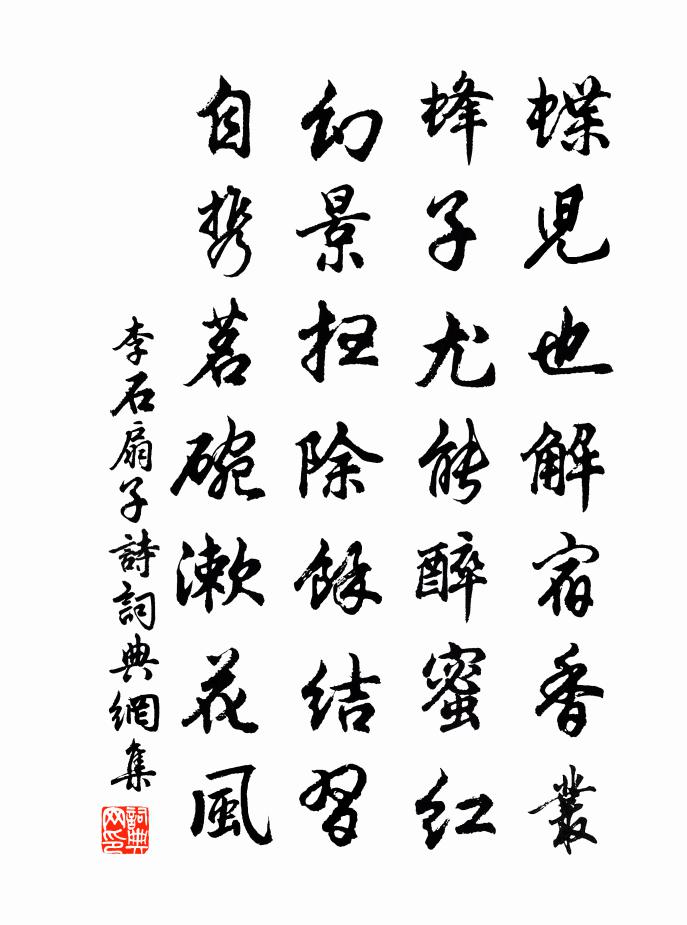 蝶児也解宿香叢
蜂子尤能醉蜜紅
幻景扫除餘结習
自携茗碗漱花風
李石扇子詩詞典網集
詞典网印